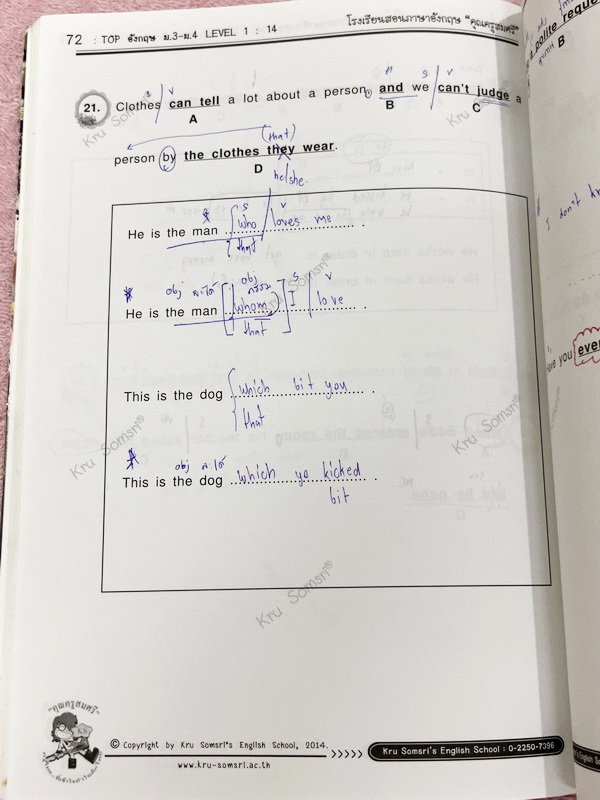 72 : TOP อังกฤษ ม.3-ม.4 LEVEL 1 : 14
โรงเรียนสอนภาษาอังกฤษ "คุณครูสมศรี"
polite reque
B
s v " s v
21. Clothes can tell a lot about a person, and we can't judge a
A B C
(that)
person by the clothes they wear.
D he/she.
s v
He is the man who loves me .
that
obj ละได้ obj s v
He is the man whom I love .
that
This is the dog which bit you .
that
obj ละได้
This is the dog which yo kicked .
bit
I don't
ave you ever
Kru Somsri®
Kru Somsri®
Kru Somsri®
Kru Somsri®
Kru Somsri®
Kru Somsri®
"คุณครูสมศรี"
© Copyright by Kru Somsri's English School, 2014.
www.kru-somsri.ac.th
>>>>> Kru Somsri's English School : 0-2250-7396